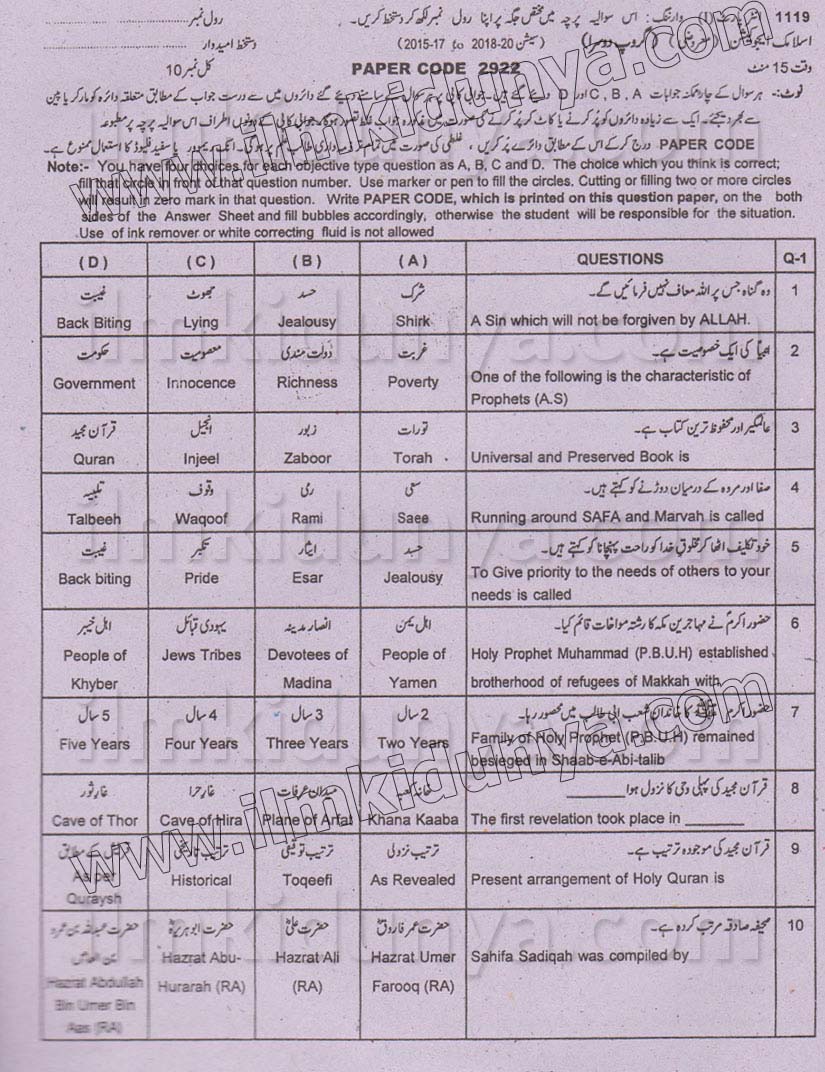 1119 انٹر پارٹ (I) وارننگ: اس سوالیہ پرچہ میں مختص جگہ پر اپنا رول نمبر لکھ کر دستخط کریں۔ رول نمبر
اسلامک ایجوکیشن (معروضی) (گروپ دوسرا) (سیشن 2018-20 to 2015-17) دستخط امیدوار
وقت 15 منٹ PAPER CODE 2922 کل نمبر 10
نوٹ:- ہر سوال کے چار ممکنہ جوابات A ،B ،C اور D دیئے گئے ہیں۔ جوابی کاپی پر ہر سوال کے سامنے دیئے گئے دائروں میں سے درست جواب کے مطابق متعلقہ دائرہ کو مارکر یا پین
سے بھر دیجئے۔ ایک سے زیادہ دائروں کو پُر کرنے یا کاٹ کر پُر کرنے کی صورت میں مذکورہ جواب غلط تصور ہوگا۔ جوابی کاپی کے دونوں اطراف اس سوالیہ پرچہ پر مطبوعہ
PAPER CODE درج کر کے اس کے مطابق دائرے پُر کریں، غلطی کی صورت میں تمام تر ذمہ داری طالب علم پر ہوگی۔ انک ریمور یا سفید فلیوڈ کا استعمال ممنوع ہے۔
Note:- You have four choices for each objective type question as A, B, C and D. The choice which you think is correct;
fill that circle in front of that question number. Use marker or pen to fill the circles. Cutting or filling two or more circles
will result in zero mark in that question. Write PAPER CODE, which is printed on this question paper, on the both
sides of the Answer Sheet and fill bubbles accordingly, otherwise the student will be responsible for the situation.
Use of ink remover or white correcting fluid is not allowed
( D ) ( C ) ( B ) ( A ) QUESTIONS Q-1
غیبت جھوٹ حسد شرک وہ گناہ جس پر اللہ معاف نہیں فرمائیں گے۔ 1
Back Biting Lying Jealousy Shirk A Sin which will not be forgiven by ALLAH.
حکومت معصومیت دولت مندی غربت انبیاؑ کی ایک خصوصیت ہے۔ 2
Government Innocence Richness Poverty One of the following is the characteristic of
Prophets (A.S)
قرآن مجید انجیل زبور تورات عالمگیر اور محفوظ ترین کتاب ہے۔ 3
Quran Injeel Zaboor Torah Universal and Preserved Book is
تلبیہ وقوف رمی سعی صفا اور مروہ کے درمیان دوڑنے کو کہتے ہیں۔ 4
Talbeeh Waqoof Rami Saee Running around SAFA and Marvah is called
غیبت تکبر ایثار حسد خود تکلیف اٹھا کر مخلوقِ خدا کو راحت پہنچانا کو کہتے ہیں۔ 5
Back biting Pride Esar Jealousy To Give priority to the needs of others to your
needs is called
اہل خیبر یہودی قبائل انصار مدینہ اہل یمن حضور اکرمؐ نے مہاجرین مکہ کا رشتہ مواخات قائم کیا۔ 6
People of Jews Tribes Devotees of People of Holy Prophet Muhammad (P.B.U.H) established
Khyber Madina Yamen brotherhood of refugees of Makkah with
5 سال 4 سال 3 سال 2 سال حضور اکرم ﷺ کا خاندان شعب ابی طالب میں محصور رہا۔ 7
Five Years Four Years Three Years Two Years Family of Holy Prophet (P.B.U.H) remained
besieged in Shaab-e-Abi-talib
غارِ ثور غارِ حرا میدان عرفات خانہ کعبہ قرآن مجید کی پہلی وحی کا نزول ہوا ________ 8
Cave of Thor Cave of Hira Plane of Arfat Khana Kaaba The first revelation took place in ________
ترتیب ترتیب توقیفی ترتیب نزولی قرآن مجید کی موجودہ ترتیب ہے۔ 9
As per Historical Toqeefi As Revealed Present arrangement of Holy Quran is
Quraysh
حضرت عبداللہ بن عمرو حضرت ابوہریرہؓ حضرت علیؓ حضرت عمر فاروقؓ صحیفہ صادقہ مرتب کردہ ہے۔ 10
بن العاص
Hazrat Abdullah Hazrat Abu- Hazrat Ali Hazrat Umer Sahifa Sadiqah was compiled by
Bin Umer Bin Hurarah (RA) (RA) Farooq (RA)
Aas (RA)
www.ilmkidunya.com
www.ilmkidunya.com
ilmkidunya.com
ilmkidunya.com
ilmkidunya.com
ilmkidunya.com
ilmkidunya.com